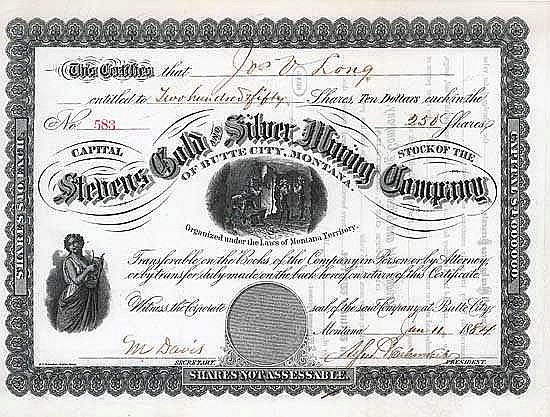 This Certifies that Jos V Long
entitled to Two hundred & fifty Shares, Ten Dollars each in the
No. 583 250 Shares
CAPITAL STOCK OF THE
Stevens Gold AND Silver Mining Company
OF BUTTE CITY, MONTANA.
Organized under the Laws of Montana Territory.
Transferable on the Books of the Company in Person or by Attorney,
or by transfer, duly made on the back hereof on return of this Certificate.
Witness the Corporate seal of the said Company at Butte City
Montana Jan 11 1884
M Davis
SECRETARY. PRESIDENT.
SHARES NOT ASSESSABLE.
SHARES $10 EACH
CAPITAL $1,000,000